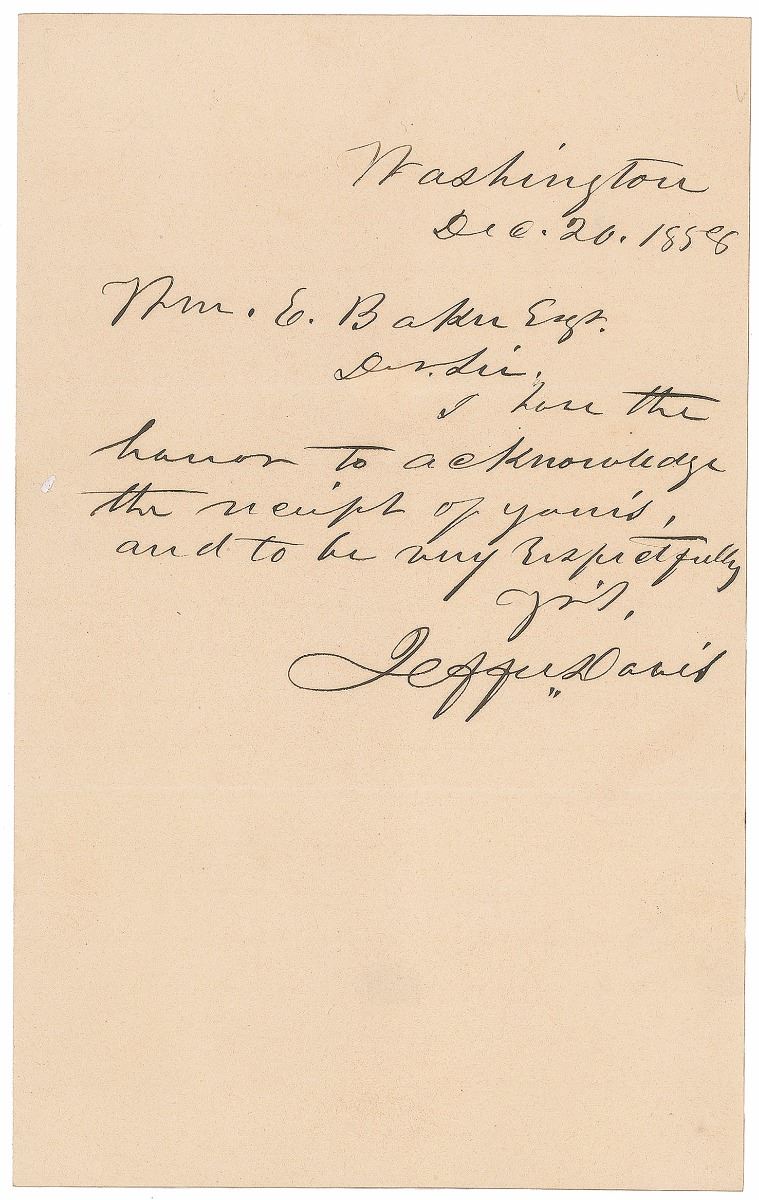 Washington
Dec. 20. 1858
Wm. E. Baker Esqr.
Dr. Sir.
I have the
honor to acknowledge
the receipt of yours,
and to be very Respectfully
yrs,
Jeffn Davis